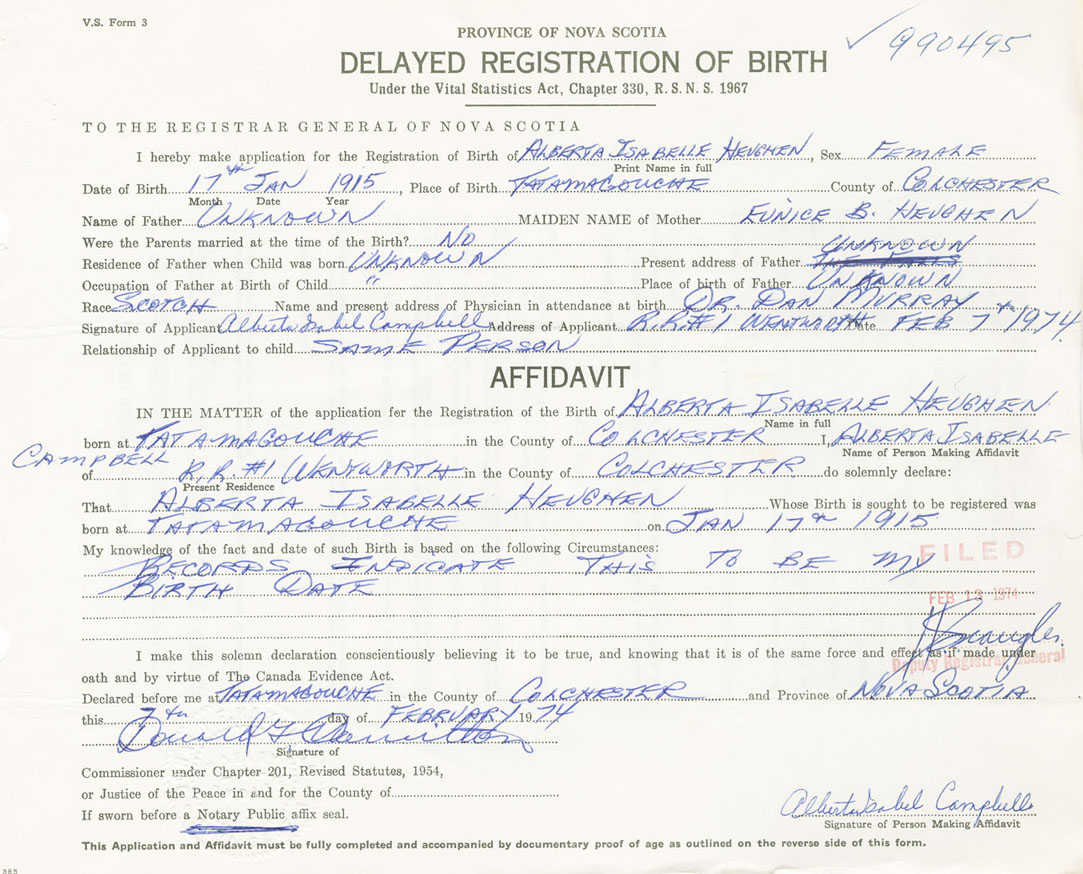 V.S. Form 3
PROVINCE OF NOVA SCOTIA
✓ 990495
DELAYED REGISTRATION OF BIRTH
Under the Vital Statistics Act, Chapter 330, R. S. N. S. 1967
TO THE REGISTRAR GENERAL OF NOVA SCOTIA
I hereby make application for the Registration of Birth of ALBERTA ISABELLE HEUGHEN, Sex FEMALE
Print Name in full
Date of Birth 17th JAN 1915, Place of Birth TATAMAGOUCHE County of COLCHESTER
Month Date Year
Name of Father UNKNOWN MAIDEN NAME of Mother EUNICE B. HEUGHEN
Were the Parents married at the time of the Birth? NO UNKNOWN
Residence of Father when Child was born UNKNOWN Present address of Father
Occupation of Father at Birth of Child " Place of birth of Father UNKNOWN
Race SCOTCH Name and present address of Physician in attendance at birth DR. DAN MURRAY
Signature of Applicant Alberta Isabel Campbell Address of Applicant R.R.#1 WENTWORTH Date FEB 7th 1974
Relationship of Applicant to child SAME PERSON
AFFIDAVIT
IN THE MATTER of the application fer the Registration of the Birth of ALBERTA ISABELLE HEUGHEN
Name in full
born at TATAMAGOUCHE in the County of COLCHESTER I, ALBERTA ISABELLE
Name of Person Making Affidavit
CAMPBELL
of R.R.#1 WENTWORTH in the County of COLCHESTER do solemnly declare:
Present Residence
That ALBERTA ISABELLE HEUGHEN Whose Birth is sought to be registered was
born at TATAMAGOUCHE on JAN 17th 1915
My knowledge of the fact and date of such Birth is based on the following Circumstances:
RECORDS INDICATE THIS TO BE MY
BIRTH DATE
FILED
FEB 13 1974
Deputy Registrar General
I make this solemn declaration conscientiously believing it to be true, and knowing that it is of the same force and effect as if made under
oath and by virtue of The Canada Evidence Act.
Declared before me at TATAMAGOUCHE in the County of COLCHESTER and Province of NOVA SCOTIA
this 7th day of FEBRUARY 1974
Donald F Hamilton
Signature of
Commissioner under Chapter 201, Revised Statutes, 1954,
or Justice of the Peace in and for the County of
If sworn before a Notary Public affix seal.
Alberta Isabel Campbell
Signature of Person Making Affidavit
This Application and Affidavit must be fully completed and accompanied by documentary proof of age as outlined on the reverse side of this form.
385